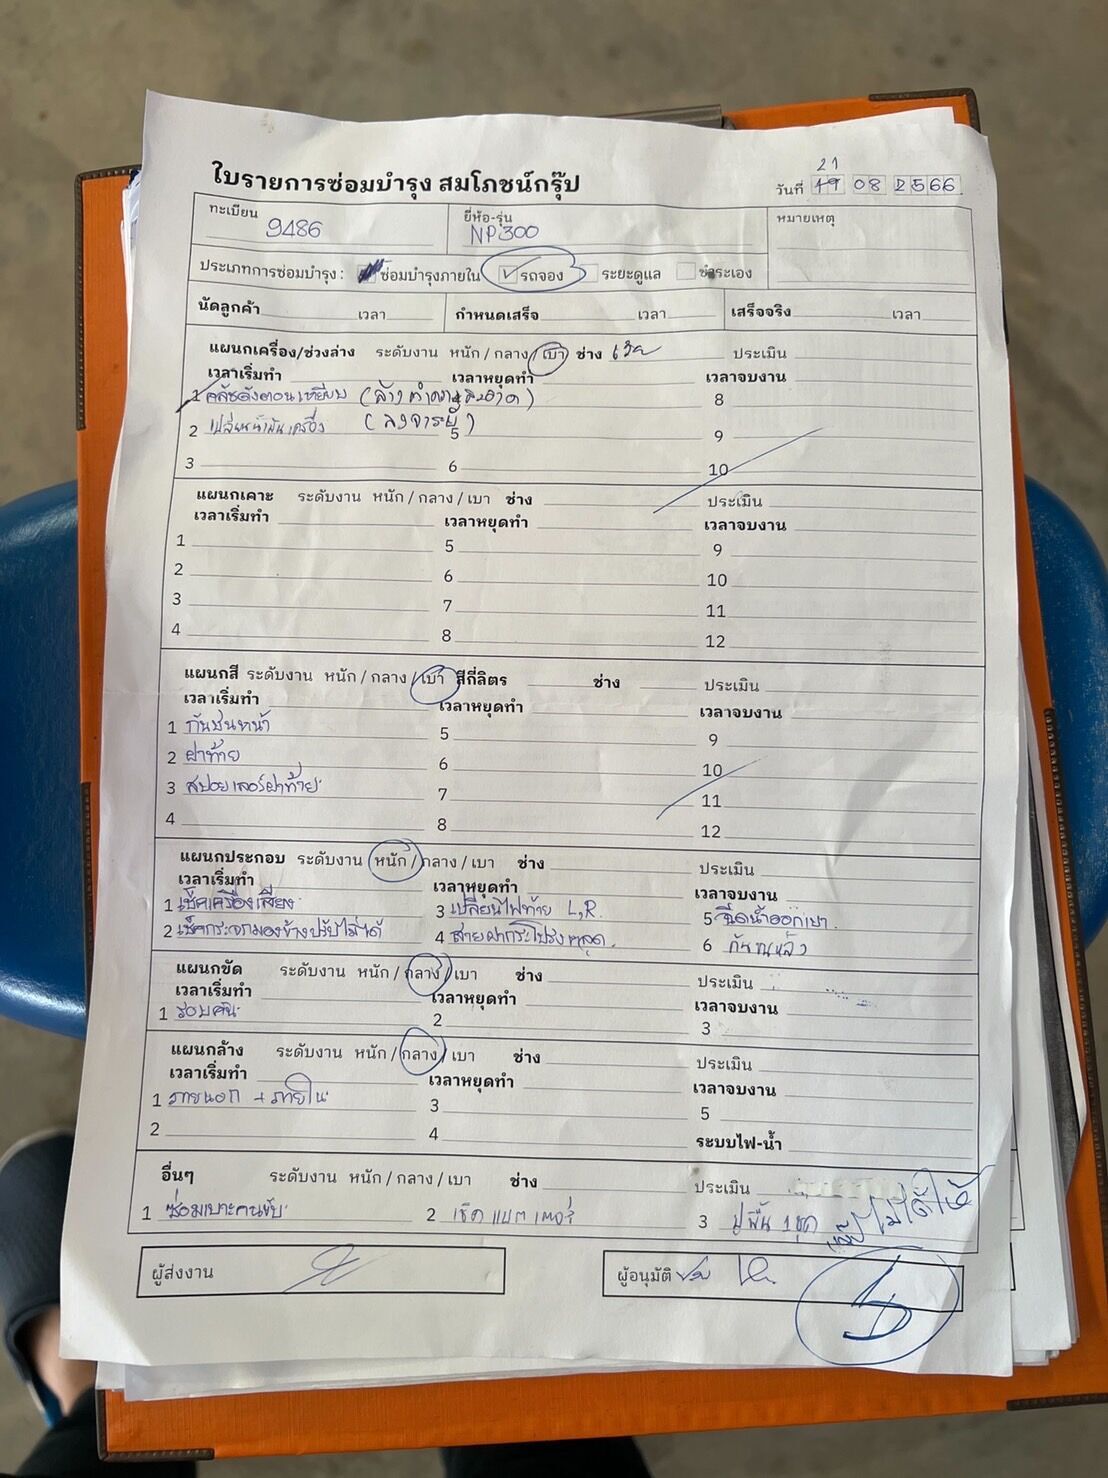 ใบรายการซ่อมบำรุง สมโภชน์กรุ๊ป
21
วันที่ 19 08 2566
ทะเบียน 9486 ยี่ห้อ-รุ่น NP300 หมายเหตุ
ประเภทการซ่อมบำรุง : ซ่อมบำรุงภายใน ✓ รถจอง ระยะดูแล ชำระเอง
นัดลูกค้า เวลา กำหนดเสร็จ เวลา เสร็จจริง เวลา
แผนกเครื่อง/ช่วงล่าง ระดับงาน หนัก / กลาง / เบา ช่าง ประเมิน
เวลาเริ่มทำ เวลาหยุดทำ เวลาจบงาน
1 คลัชดังตอนเหยียบ (ล้างทำความสะอาด) 8
2 เปลี่ยนน้ำมันเครื่อง (ลงจารบี) 5 9
3 6 10
แผนกเคาะ ระดับงาน หนัก / กลาง / เบา ช่าง ประเมิน
เวลาเริ่มทำ เวลาหยุดทำ เวลาจบงาน
1 5 9
2 6 10
3 7 11
4 8 12
แผนกสี ระดับงาน หนัก / กลาง / เบา สีกี่ลิตร ช่าง ประเมิน
เวลาเริ่มทำ เวลาหยุดทำ เวลาจบงาน
1 กันชนหน้า 5 9
2 ฝาท้าย 6 10
3 สปอยเลอร์ฝาท้าย 7 11
4 8 12
แผนกประกอบ ระดับงาน หนัก / กลาง / เบา ช่าง ประเมิน
เวลาเริ่มทำ เวลาหยุดทำ เวลาจบงาน
1 เช็คเครื่องเสียง 3 เปลี่ยนไฟท้าย L,R. 5 ฉีดน้ำออกเบา
2 เช็คกระจกมองข้างปรับไม่ได้ 4 สายฝากระโปรงหลุด 6 กันชนหลัง
แผนกขัด ระดับงาน หนัก / กลาง / เบา ช่าง ประเมิน
เวลาเริ่มทำ เวลาหยุดทำ เวลาจบงาน
1 รอบคัน 2 3
แผนกล้าง ระดับงาน หนัก / กลาง / เบา ช่าง ประเมิน
เวลาเริ่มทำ เวลาหยุดทำ เวลาจบงาน
1 ภายนอก + ภายใน 3 5
2 4 ระบบไฟ-น้ำ
อื่นๆ ระดับงาน หนัก / กลาง / เบา ช่าง ประเมิน
1 ซ่อมเบาะคนขับ 2 เช็คแบตเตอรี่ 3 ปูพื้น 1 ชุด ไม่ได้ใช้
ผู้ส่งงาน ผู้อนุมัติ